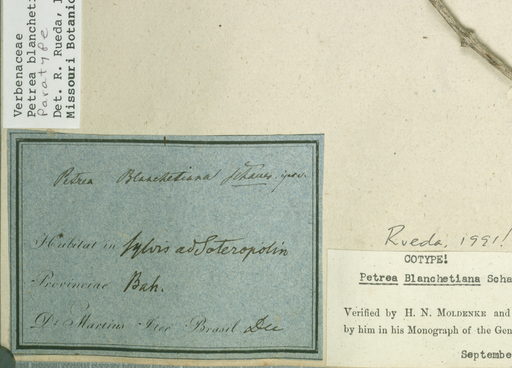 Verbenaceae
Petrea blanchet
Paratype
Det. R. Rueda,
Missouri Botanic
Petrea Blanchetiana Schauer. ipse.
Habitat in sylvis ad Soteropolin
Provinciae Bah.
Dr Martius Iter Brasil Dec
Rueda, 1991!
COTYPE!
Petrea Blanchetiana Scha
Verified by H. N. MOLDENKE and
by him in his Monograph of the Gen
Septembe